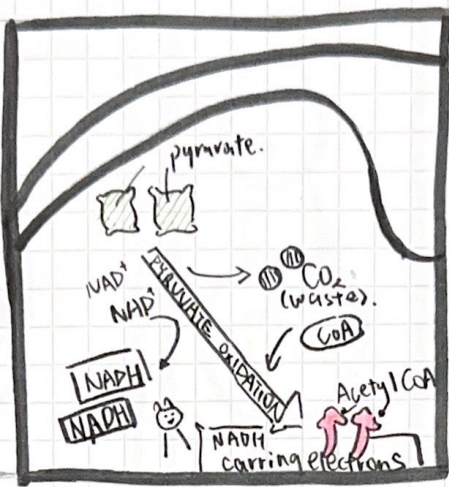 pyruvate.
NAD⁺
NAD⁺
PYRUVATE OXIDATION
CO₂
(waste).
CoA
NADH
NADH
Acetyl CoA
NADH
carring electrons